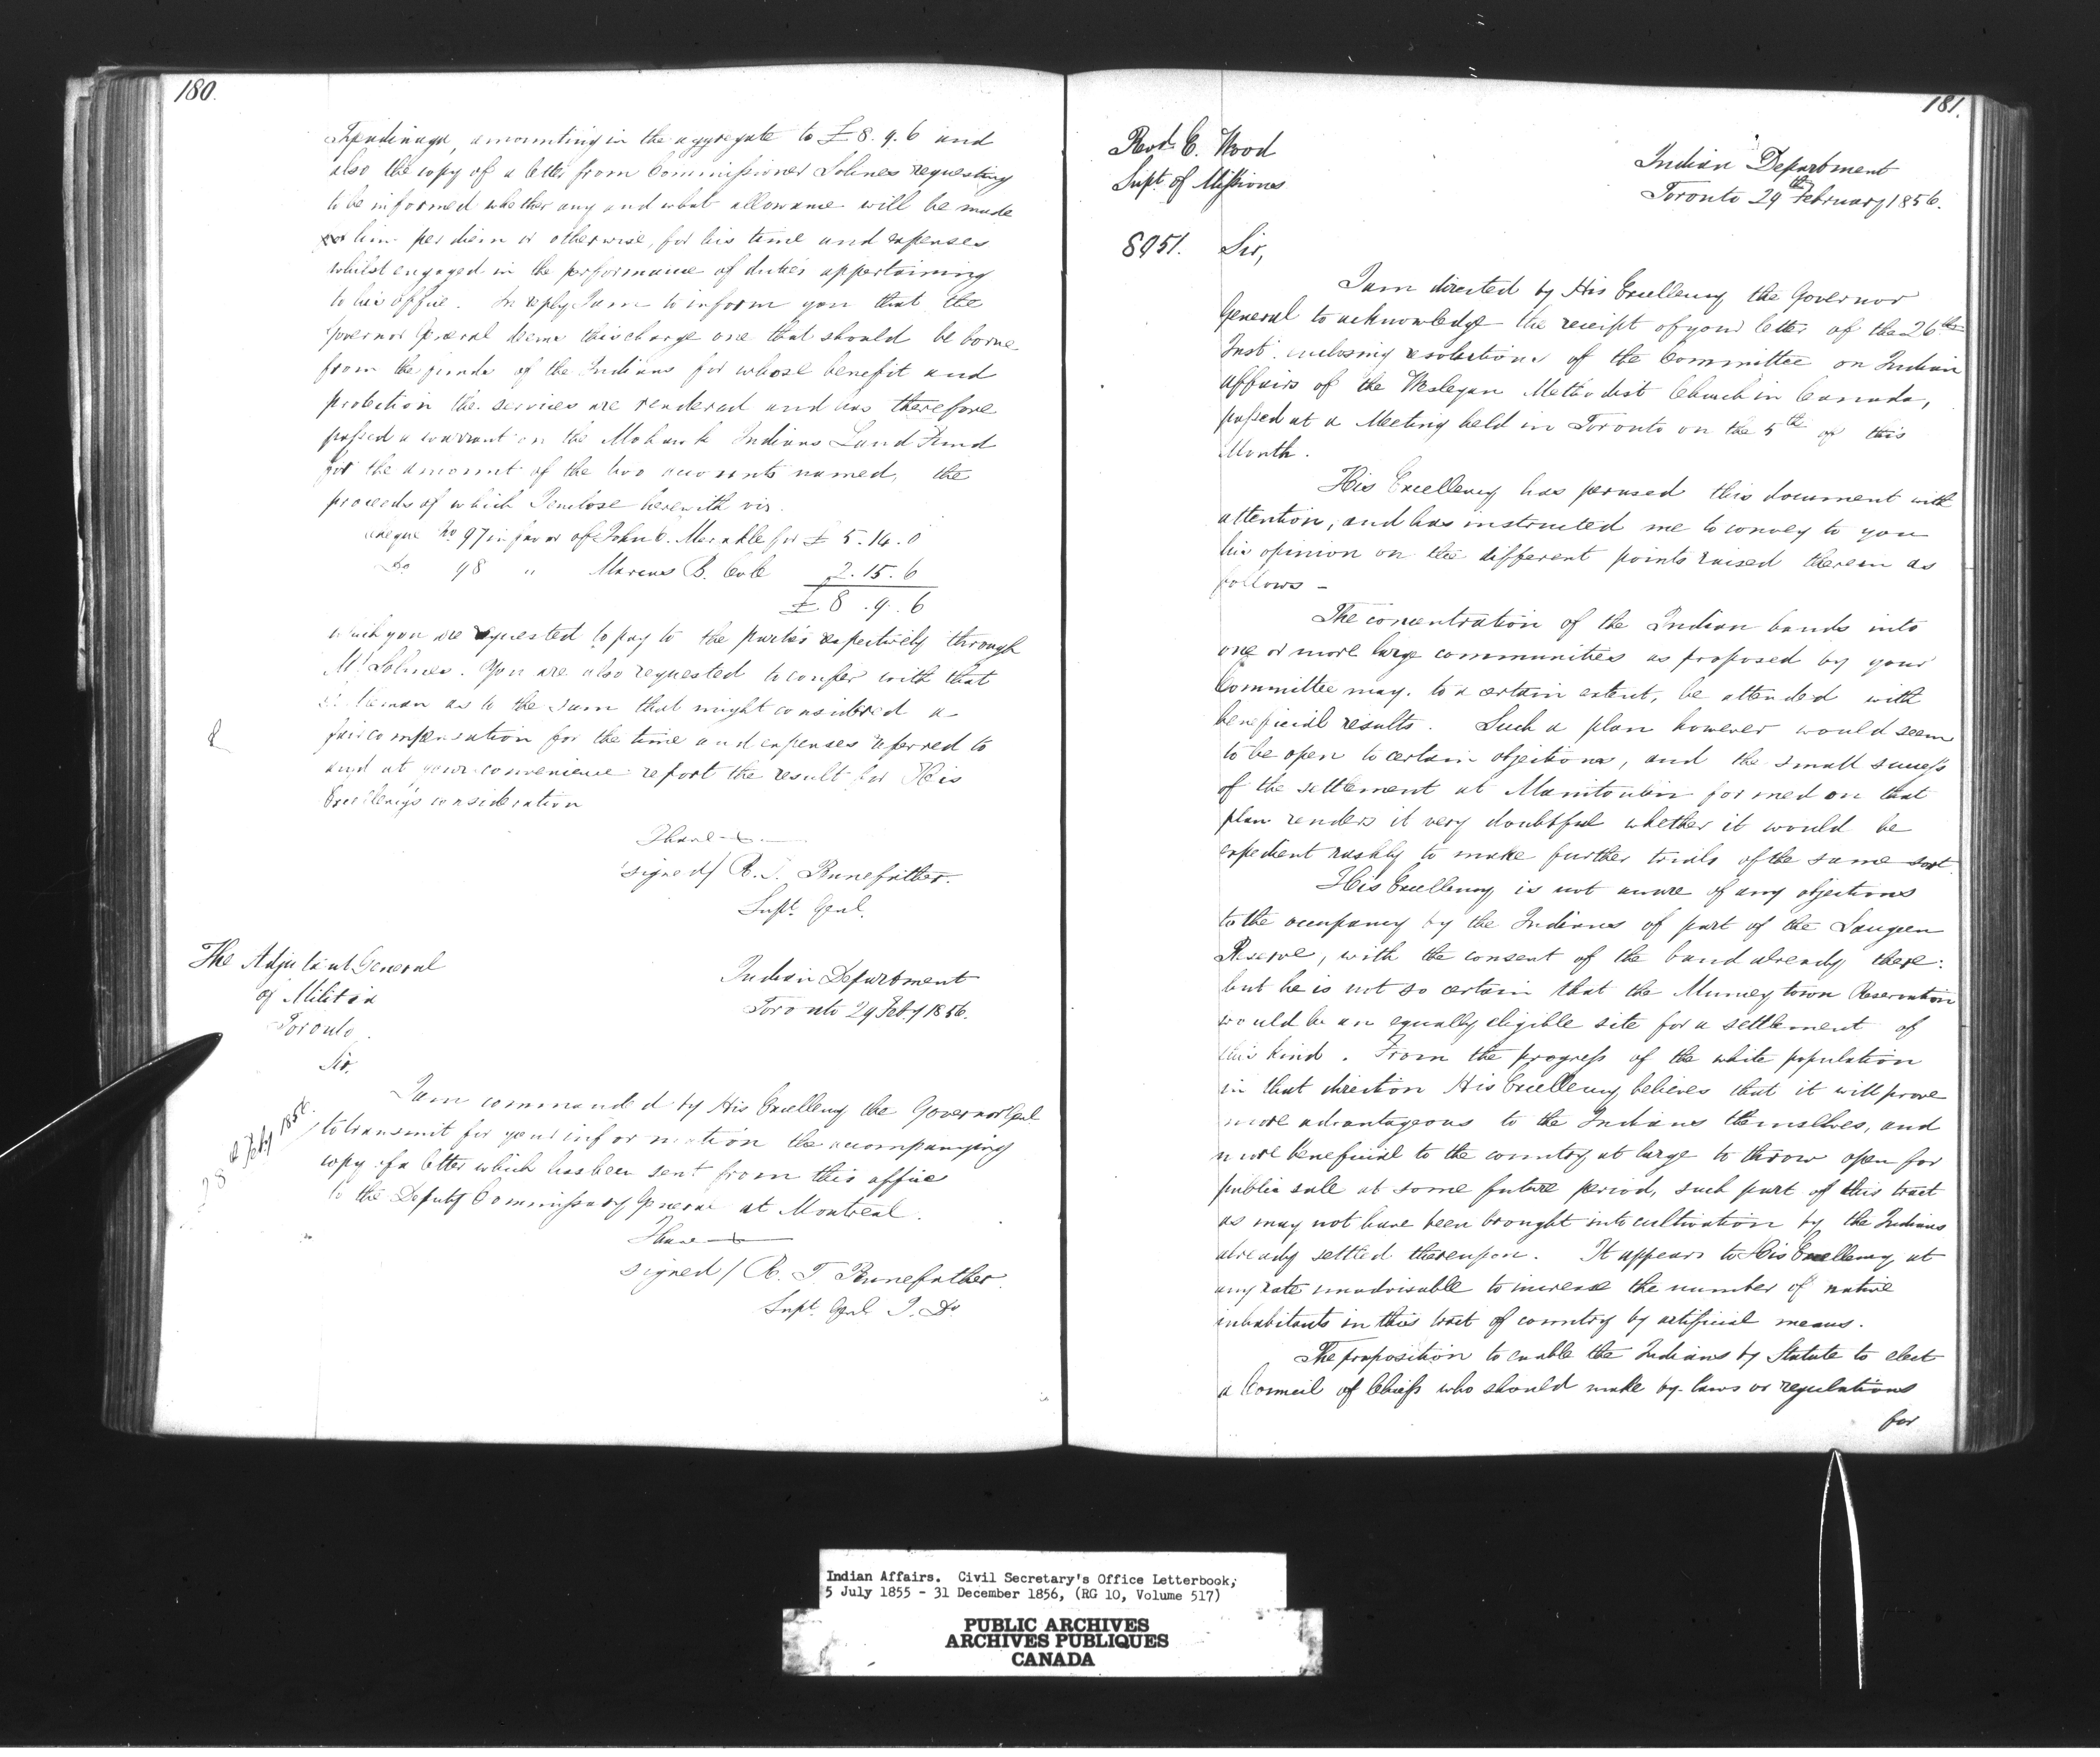 180.
Tyendinaga, amounting in the aggregate to £8.9.6 and
also the copy of a letter from Commissioner Solmes requesting
to be informed whether any and what allowance will be made
him per diem or otherwise, for his time and expenses
whilst engaged in the performance of duties appertaining
to his office. In reply I am to inform you that the
Governor General deems this charge one that should be borne
from the funds of the Indians for whose benefit and
protection the services are rendered and has therefore
passed a warrant on the Mohawk Indians Land Fund
for the amount of the two accounts named, the
proceeds of which I enclose herewith viz.
Cheque No 97 in favor of John C. for £ 5.14.0
Do 98 " Marcus B. Cole 2.15.6
£ 8.9.6
which you are requested to pay to the parties respectively through
Mr Solmes. You are also requested to confer with that
Gentleman as to the sum that might considered a
fair compensation for the time and expenses referred to
and at your convenience report the result for His
Excellency's consideration
I have
signed/ R. T. Pennefather.
Supt. Genl.
The Adjutant General
of Militia
Toronto.
Indian Department
Toronto 29 Feby 1856.
Sir.
28th Feby 1856
I am commanded by His Excellency the Governor Genl
to transmit for your information the accompanying
copy of a letter which has been sent from this office
to the Deputy Commissary General at Montreal.
I have
signed/ R. T. Pennefather.
Supt. Genl. I. Dt
181.
Revd. E. Wood
Supt. of Missions
Indian Department
Toronto 29th February 1856.
8951.
Sir,
I am directed by His Excellency the Governor
General to acknowledge the receipt of your letter of the 26th
Inst. enclosing resolutions of the Committee on Indian
affairs of the Wesleyan Methodist Church in Canada,
passed at a Meeting held in Toronto on the 5th of this
Month.
His Excellency has perused this document with
attention, and has instructed me to convey to you
his opinion on the different points raised therein as
follows -
The concentration of the Indian bands into
one or more large communities as proposed by your
Committee may. to a certain extent, be attended with
beneficial results. Such a plan however would seem
to be open to certain objections, and the small success
of the settlement at Manitoulin formed on that
plan renders it very doubtful whether it would be
expedient rashly to make further trials of the same sort.
His Excellency is not aware of any objections
to the occupancy by the Indians of part of the Saugeen
Reserve, with the consent of the band already there:
but he is not so certain that the Munceytown Reservation
would be an equally eligible site for a settlement of
this kind. From the progress of the white population
in that direction His Excellency believes that it will prove
more advantageous to the Indians themselves, and
more beneficial to the country at large to throw open for
public sale at some future period, such part of this tract
as may not have been brought into cultivation by the Indians
already settled thereupon. It appears to His Excellency, at
any rate unadvisable to increase the number of native
inhabitants in this tract of country by artificial means.
The proposition to enable the Indians by Statute to elect
a Council of Chiefs who should make by-laws or regulations
for
Indian Affairs. Civil Secretary's Office Letterbook,
5 July 1855 - 31 December 1856, (RG 10, Volume 517)
PUBLIC ARCHIVES
ARCHIVES PUBLIQUES
CANADA